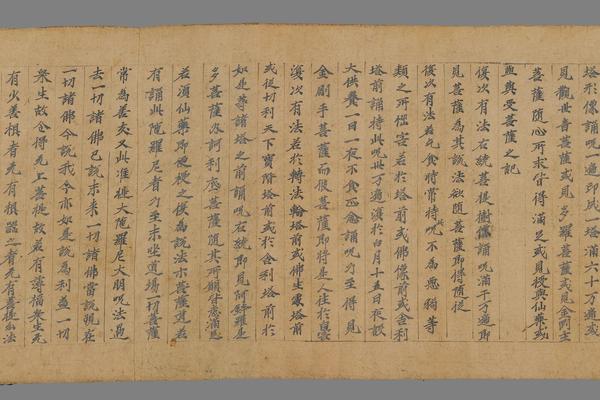 塔形像誦呪一遍即成一塔滿六十万遍
見觀世音菩薩或見多羅菩薩或見金剛主
菩薩隨心所求皆得滿足或見授與仙藥或
與受菩薩之記
復次有法右繞菩提樹像誦呪滿千万遍即
見菩薩為其說法欲隨菩薩即得隨從
復次有法若乞食時常持呪不為惡猫等
類之所傷害若於塔前或佛像前或舍利
塔前誦持此呪卅万遍復於白月十五日夜設
大供養一日一夜不食正念誦呪乃至得見
金剛手菩薩而彼菩薩即將是人往於自宮
復次有法若於轉法輪塔前或佛生處塔前
或從忉利天下寶階塔前或於舍利塔前於
如是等諸塔之前誦呪右繞即見阿鉢羅是
多菩薩及訶利底菩薩隨其所願皆悉滿足
若須仙藥即便授之復為說法示菩薩道若
有誦此陀羅尼者乃至未坐道場一切菩薩
常為善友又此准大陀羅尼大明呪法過
去一切諸佛已說未來一切諸佛當說現在
一切諸佛今說我今亦如是說為利益一切
衆生故令得无上菩提故若有薄福衆生无
有少善根者无有根器之者无有菩提分法